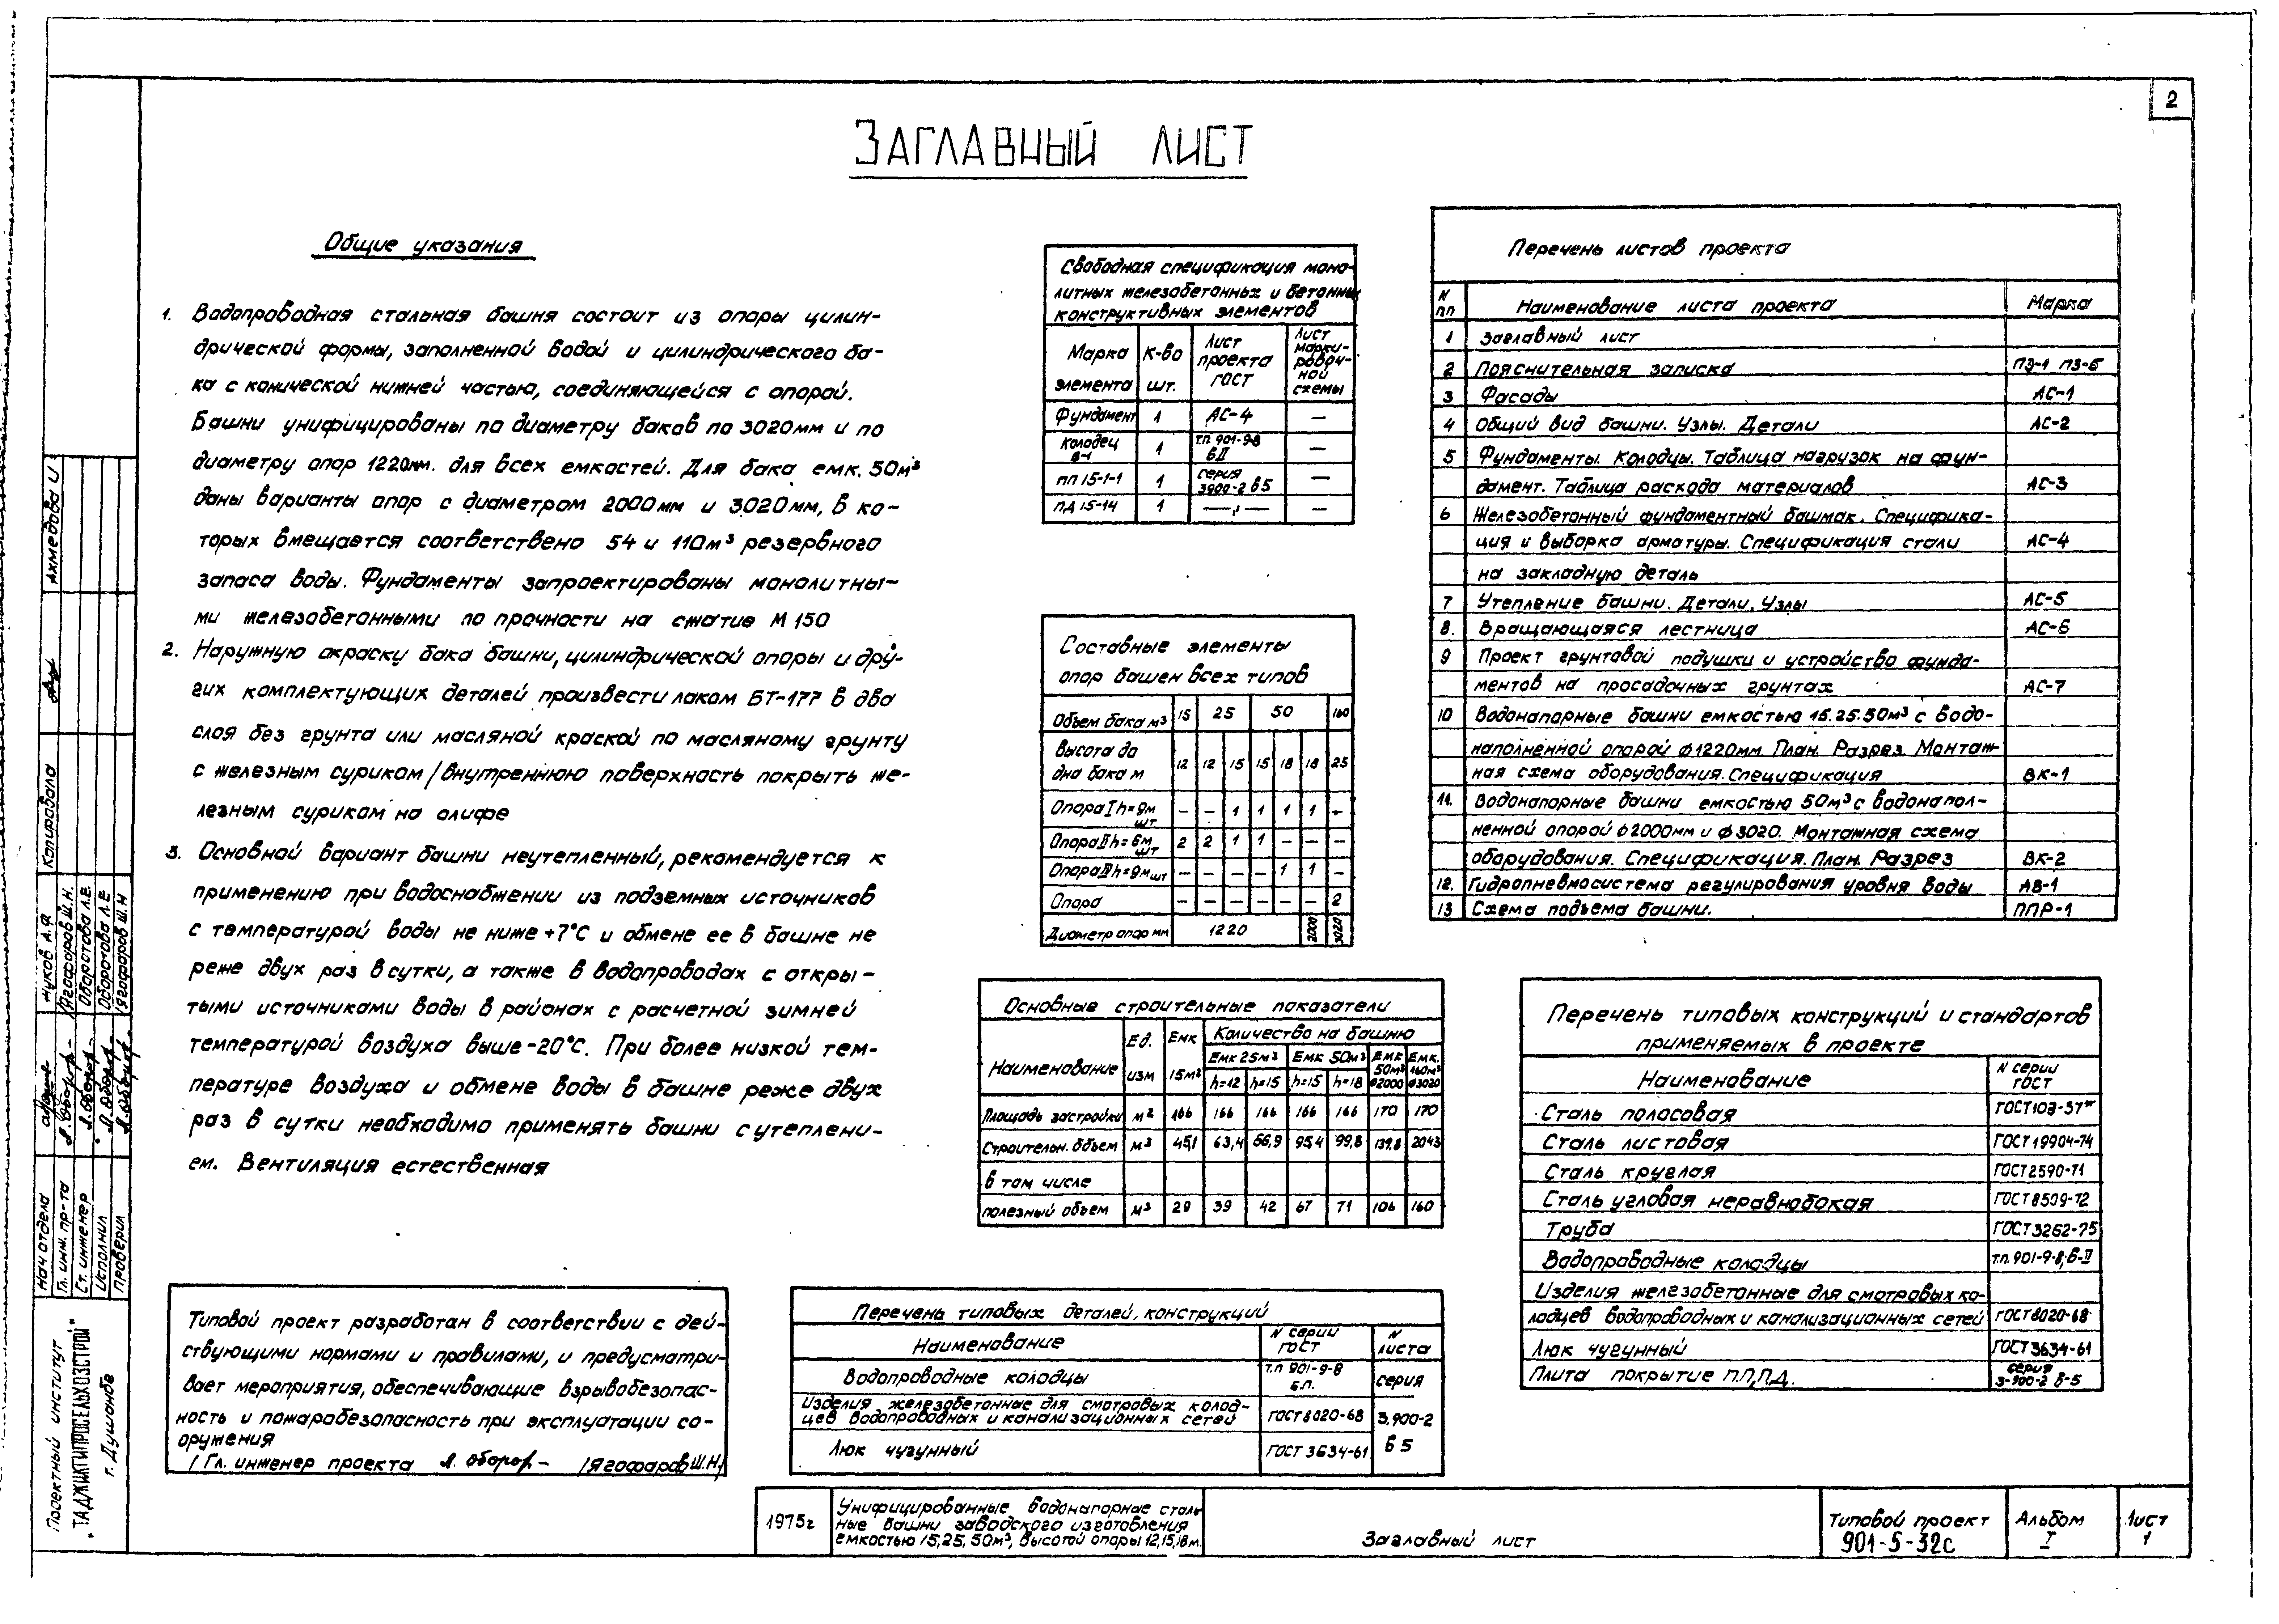 2
ЗАГЛАВНЫЙ ЛИСТ
Общие указания
1. Водопроводная стальная башня состоит из опоры цилин-
дрической формы, заполненной водой и цилиндрического ба-
ка с конической нижней частью, соединяющейся с опорой.
Башни унифицированы по диаметру баков по 3020мм и по
диаметру опор 1220мм. для всех емкостей. Для бака емк. 50м³
даны варианты опор с диаметром 2000мм и 3020мм, в ко-
торых вмещается соответствено 54 и 110м³ резервного
запаса воды. Фундаменты запроектированы монолитны-
ми железобетонными по прочности на сжатие М 150
2. Наружную окраску бака башни, цилиндрической опоры и дру-
гих комплектующих деталей произвести лаком БТ-177 в два
слоя без грунта или масляной краской по масляному грунту
с железным суриком /внутреннюю поверхность покрыть же-
лезным суриком на олифе
3. Основной вариант башни неутепленный, рекомендуется к
применению при водоснабжении из подземных источников
с температурой воды не ниже +7°С и обмене ее в башне не
реже двух раз в сутки, а также в водопроводах с откры-
тыми источниками воды в районах с расчетной зимней
температурой воздуха выше -20°С. При более низкой тем-
пературе воздуха и обмене воды в башне реже двух
раз в сутки необходимо применять башни с утеплени-
ем. Вентиляция естественная
Типовой проект разработан в соответствии с дей-
ствующими нормами и правилами, и предусматри-
вает мероприятия, обеспечивающие взрывобезопас-
ность и пожаробезопасность при эксплуатации со-
оружения
/Гл. инженер проекта /Ягофаров Ш.Н/
Свободная спецификация моно-
литных железобетонных и бетонных
конструктивных элементов
Марка элемента К-во шт. Лист проекта ГОСТ Лист марки-ровоч-ной схемы
Фундамент 1 АС-4 —
Колодец В-1 1 т.п. 901-9-8 БII —
ПП 15-1-1 1 серия 3900-2 в5 —
ПД 15-14 1 —„— —
Составные элементы
опор башен всех типов
Объем бака м³ 15 25 50 160
Высота до дна бака м 12 12 15 15 18 18 25
Опора I h=9м шт — — 1 1 1 1 —
Опора II h=6м шт 2 2 1 1 — — —
Опора III h=9м шт — — — — 1 1 —
Опора — — — — — — 2
Диаметр опор мм 1220 2000 3020
Основные строительные показатели
Наименование Ед. изм Емк 15м³ Количество на башню
Емк 25м³ Емк 50м³ Емк 50м³ ф2000 Емк. 160м³ ф3020
h=12 h=15 h=15 h=18
Площадь застройки м² 166 166 166 166 166 170 170
Строительн. объем м³ 45,1 63,4 66,9 95,4 99,8 139,8 204,3
В том числе
полезный объем м³ 29 39 42 67 71 106 160
Перечень типовых деталей, конструкций
Наименование N серии ГОСТ N листа
Водопроводные колодцы т.п 901-9-8 Б.П. серия
Изделия железобетонные для смотровых колод-
цев водопроводных и канализационных сетей ГОСТ 8020-68 3.900-2
Люк чугунный ГОСТ 3634-61 в 5
Перечень листов проекта
N пп Наименование листа проекта Марка
1 Заглавный лист
2 Пояснительная записка ПЗ-1 ПЗ-6
3 Фасады АС-1
4 Общий вид башни. Узлы. Детали АС-2
5 Фундаменты. Колодцы. Таблица нагрузок на фун-
дамент. Таблица расхода материалов АС-3
6 Железобетонный фундаментный башмак. Специфика-
ция и выборка арматуры. Спецификация стали АС-4
на закладную деталь
7 Утепление башни. Детали, Узлы АС-5
8. Вращающаяся лестница АС-6
9 Проект грунтовой подушки и устройство фунда-
ментов на просадочных грунтах АС-7
10 Водонапорные башни емкостью 15.25.50м³ с водо-
наполненной опорой ф1220мм План. Разрез. Монтаж-
ная схема оборудования. Спецификация ВК-1
11. Водонапорные башни емкостью 50м³ с водонапол-
ненной опорой ф2000мм и ф3020. Монтажная схема
оборудования. Спецификация. План. Разрез ВК-2
12. Гидропневмосистема регулирования уровня воды АВ-1
13 Схема подъема башни. ППР-1
Перечень типовых конструкций и стандартов
применяемых в проекте
Наименование N серии ГОСТ
Сталь полосовая ГОСТ103-57*
Сталь листовая ГОСТ19904-74
Сталь круглая ГОСТ2590-71
Сталь угловая неравнобокая ГОСТ8509-72
Труба ГОСТ3262-75
Водопроводные колодцы т.п. 901-9-8; Б-II
Изделия железобетонные для смотровых ко-
лодцев водопроводных и канализационных сетей ГОСТ8020-68
Люк чугунный ГОСТ3634-61
Плита покрытие П.П,П.Д. серия 3-900-2 в-5
1975г
Унифицированные водонапорные сталь
ные башни заводского изготовления
емкостью 15,25, 50м³, высотой опоры 12,15,18м.
Заглавный лист
Типовой проект
901-5-32с
Альбом
I
Лист
1
Проектный институт
„ТАДЖИКГИПРОСЕЛЬХОЗСТРОЙ"
г. Душанбе
Нач отдела
Гл. инж. пр-та Ягофаров Ш.Н.
Ст. инженер Оборотова Л.Е.
Исполнил Оборотова Л.Е
Проверил Ягофаров Ш.Н
Копировала Ахмедова И